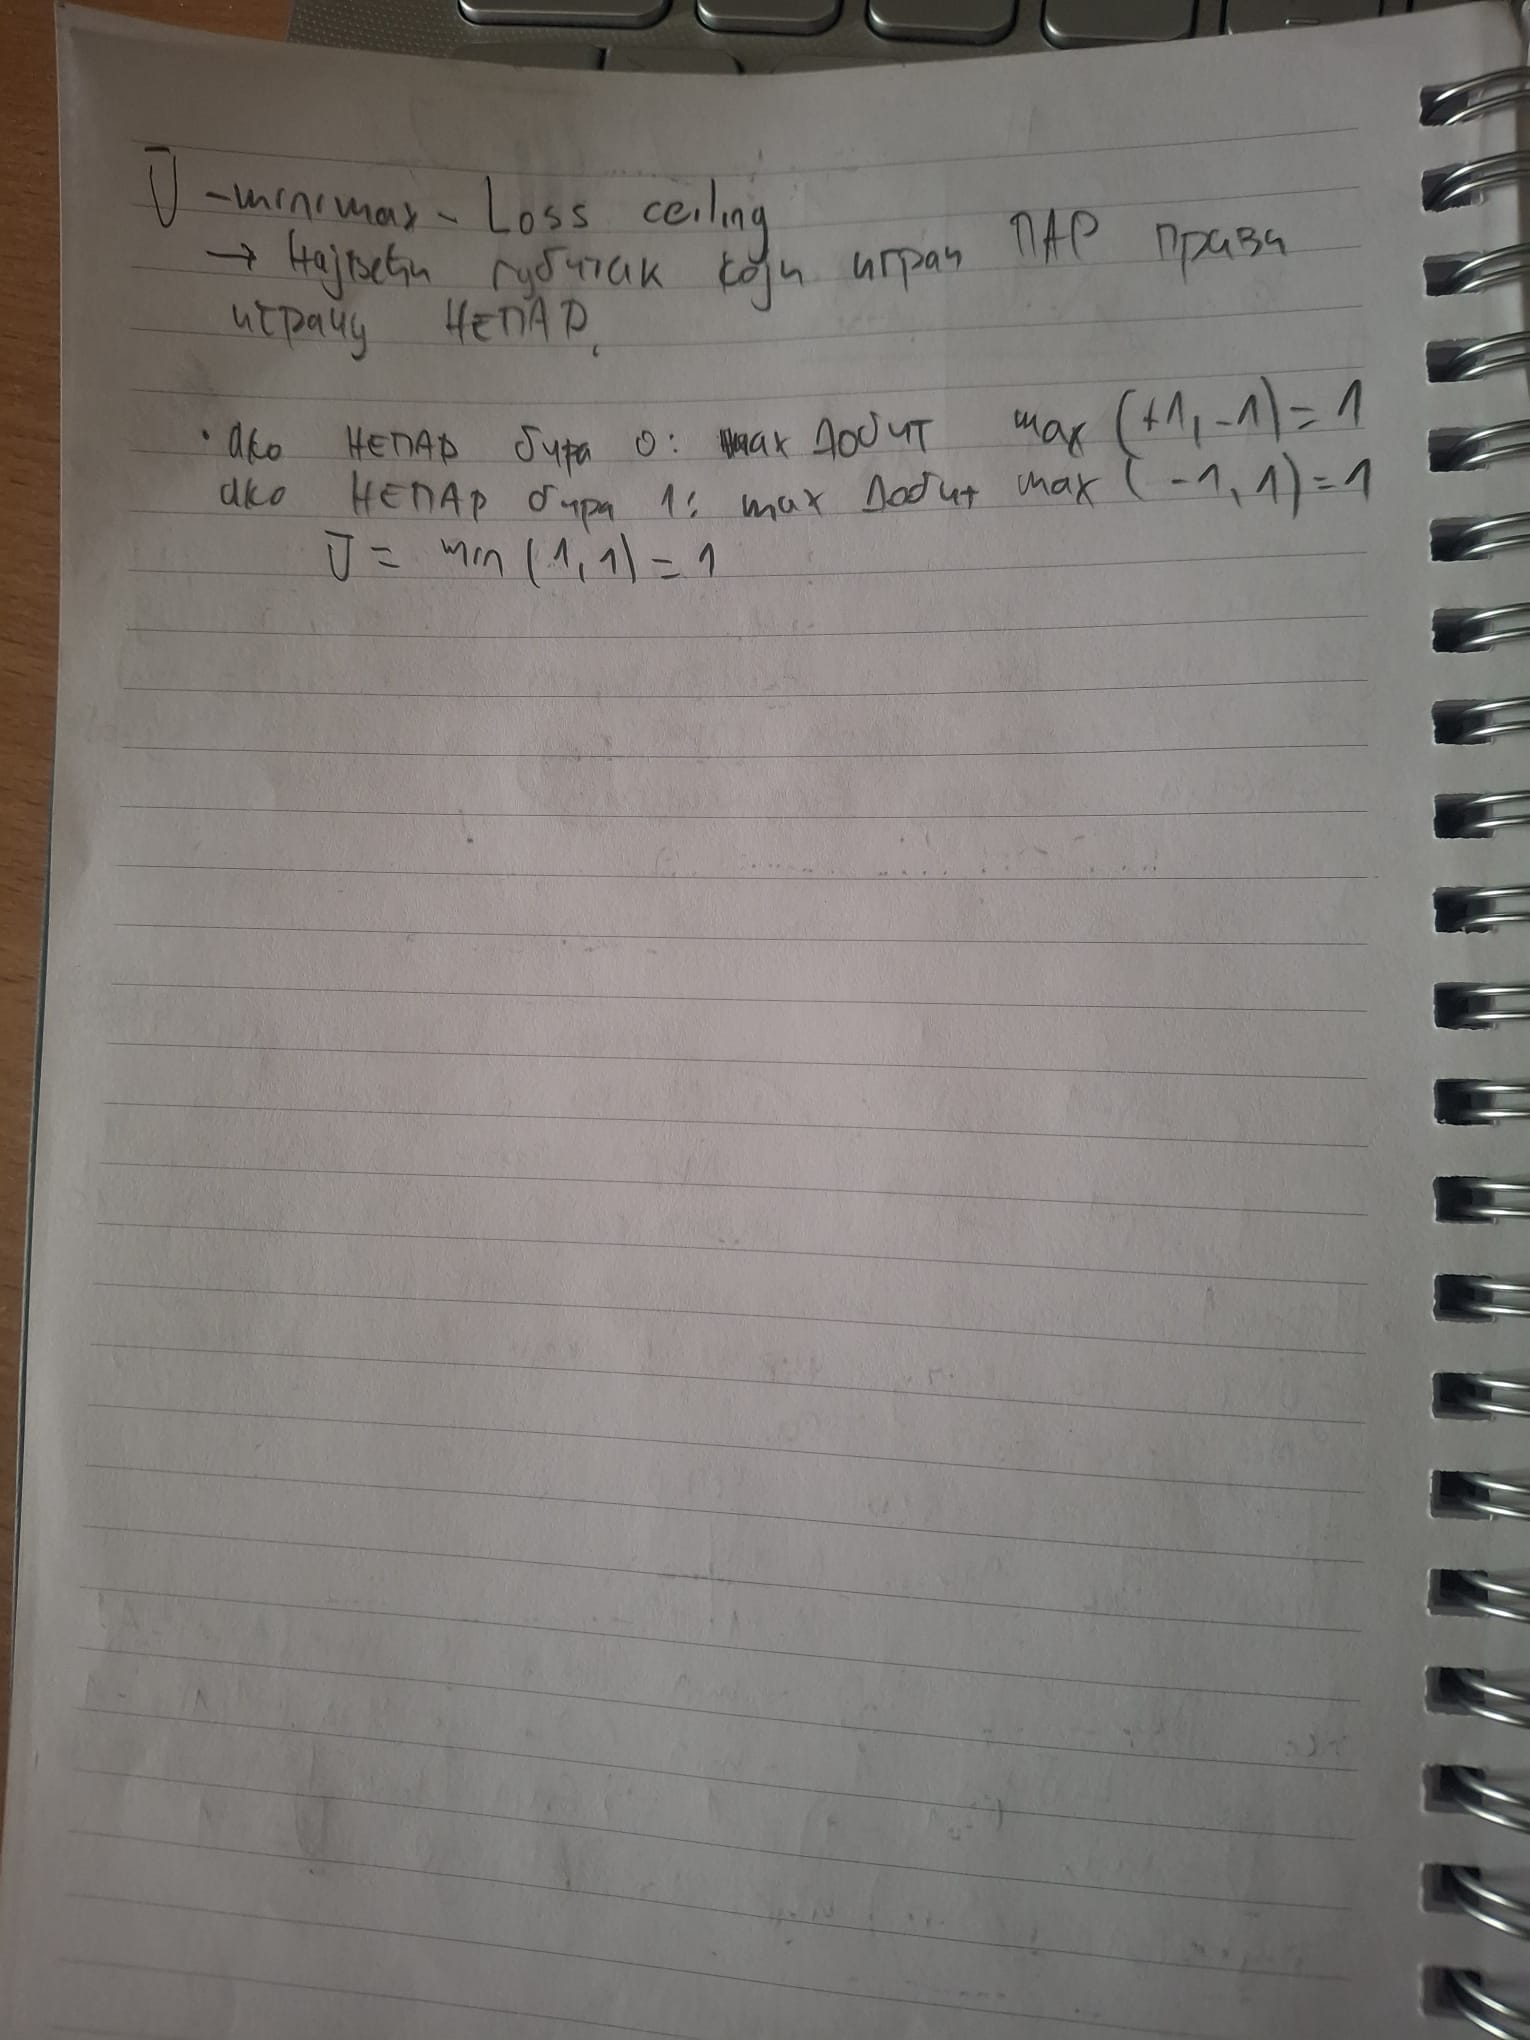 Ū - minimax - Loss ceiling
→ Највећи губитак који играч ПАР прави
играчу НЕПАР.
• ако НЕПАР бира 0: max Добит max (+1, -1) = 1
ако НЕПАР бира 1: max Добит max (-1, 1) = 1
Ū = min (1, 1) = 1